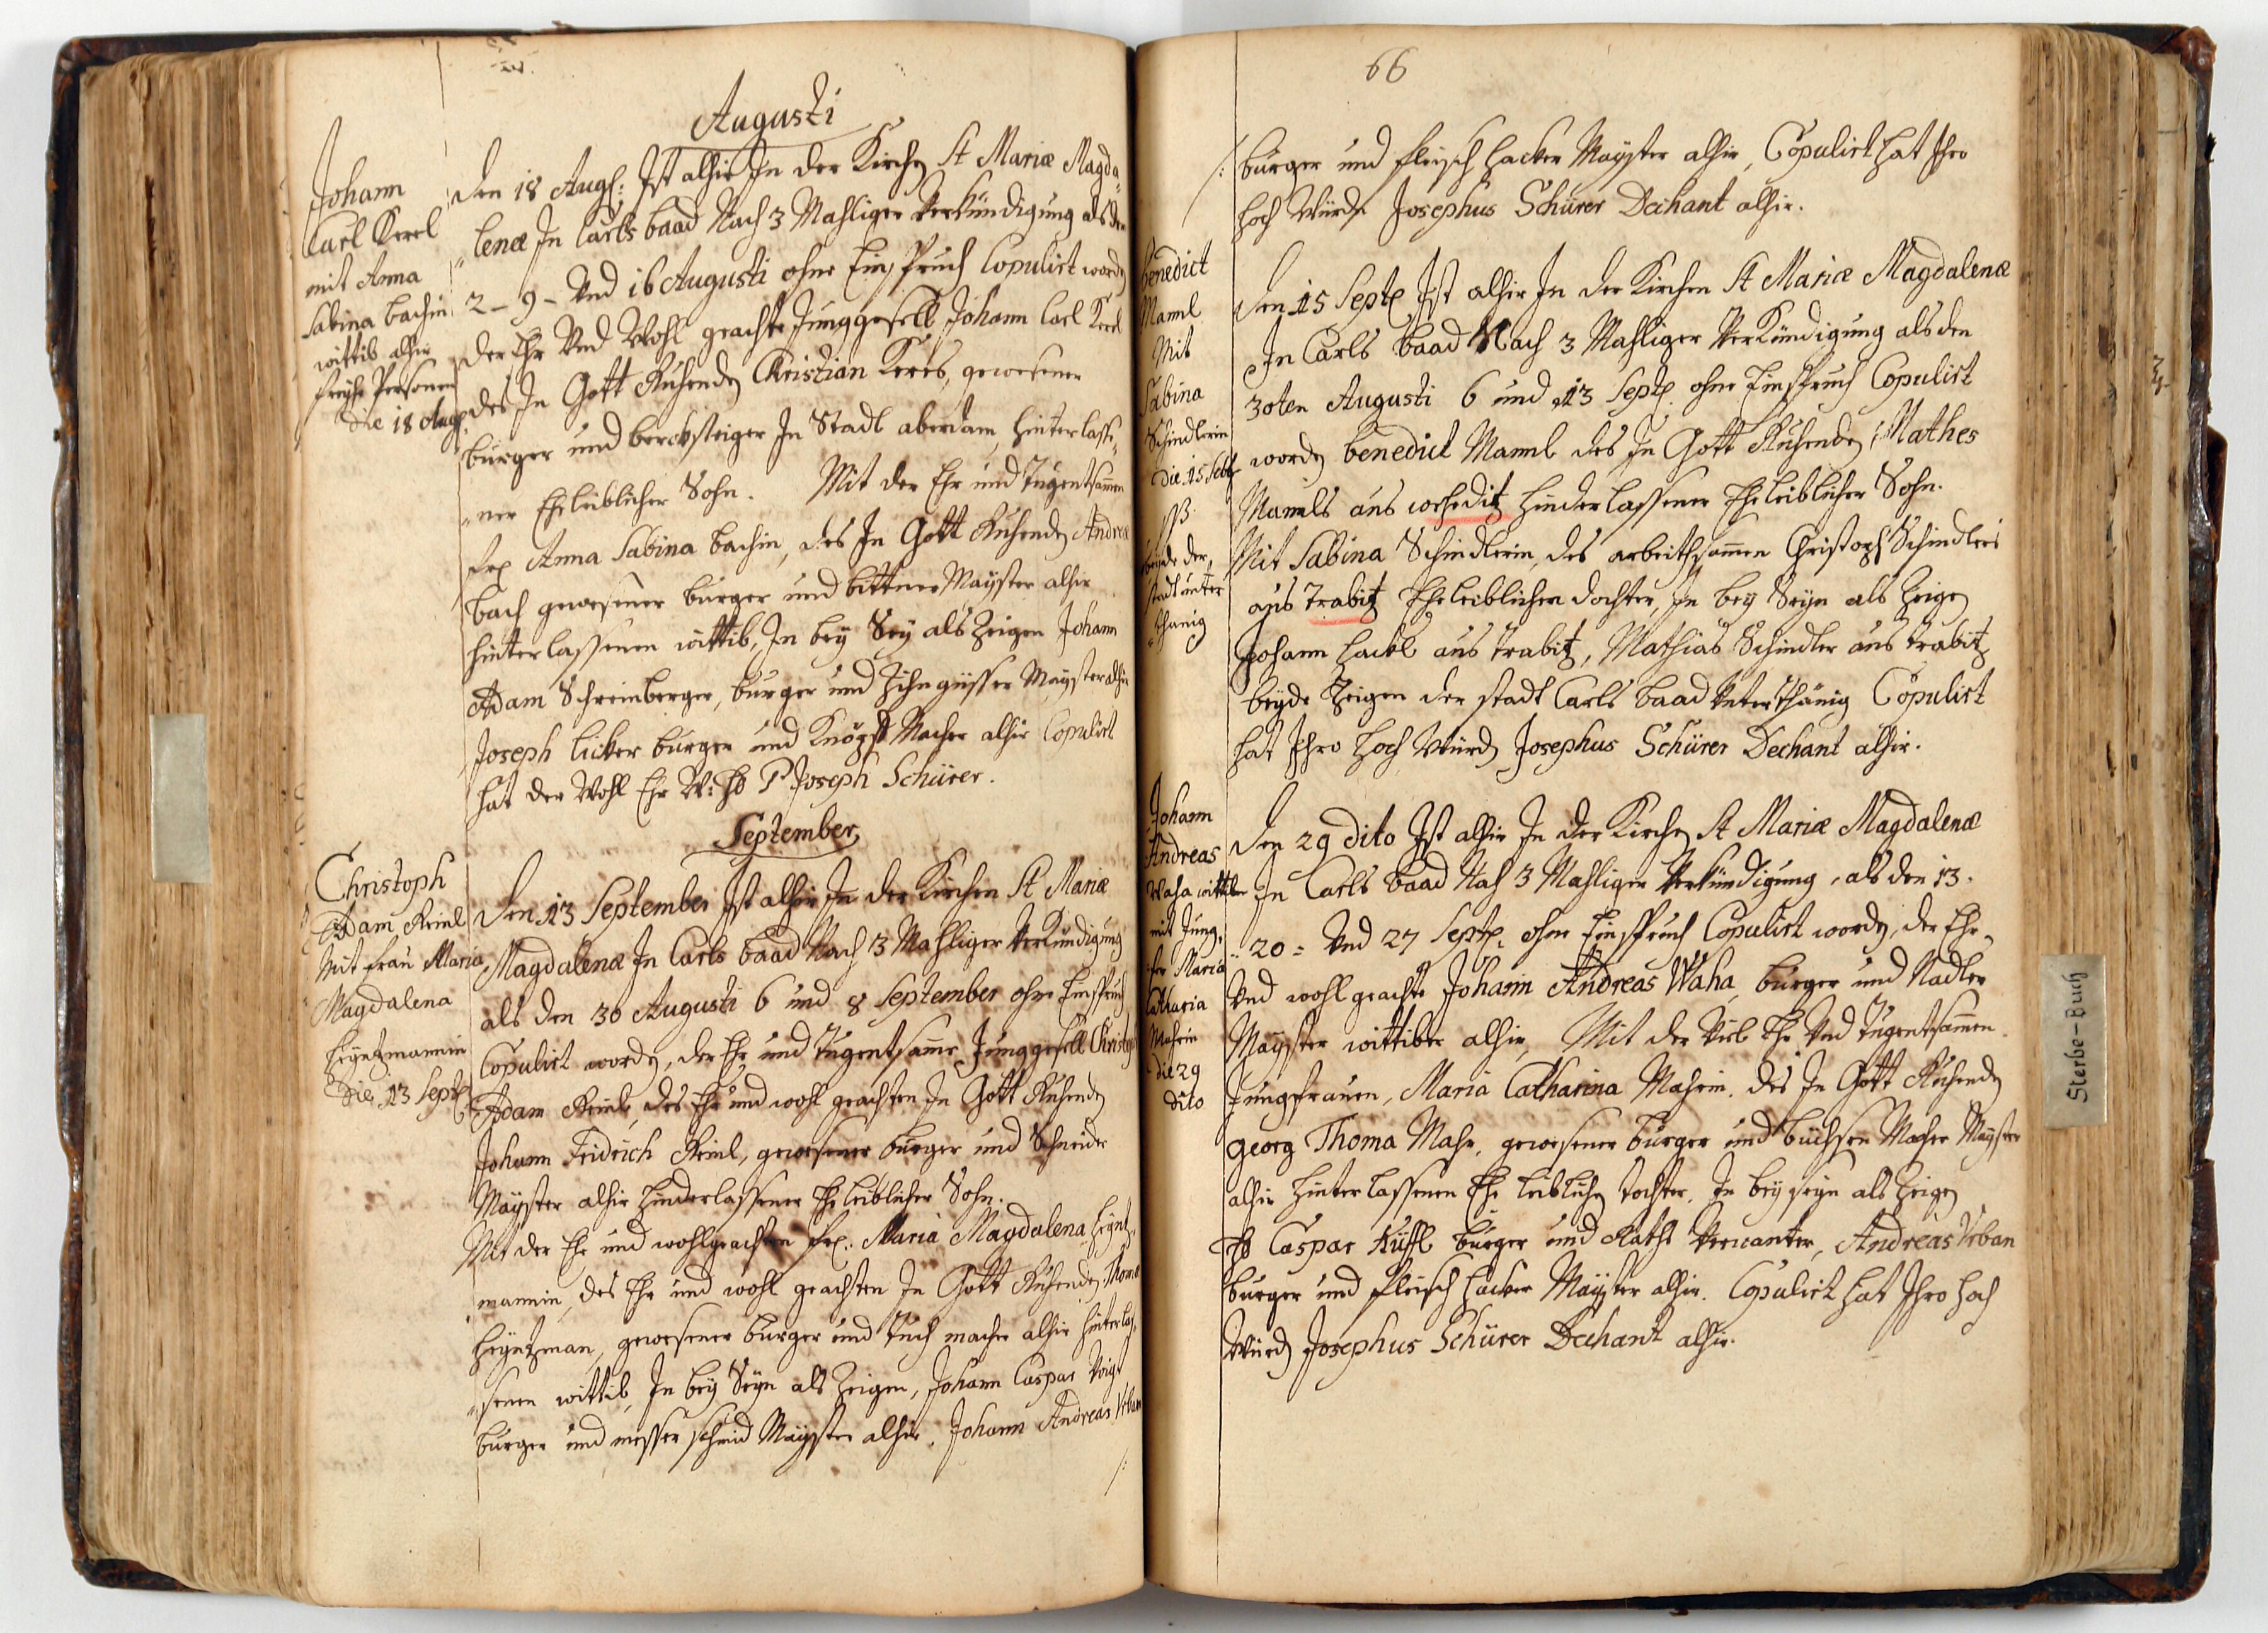 Augusti
Johann
Carl Kerel
mit Anna
Sabina bachin
wittib alhir
freyhe Personen
die 18 Aug.
Den 18 Aug: Ist alhir In der Kirchen St Mariæ Magda„
„lenæ In Carlsbaad Nach 3 Mahliger Verkündigung als den
2 – 9 – Und 16 Augusti ohne Einspruch Copulirt worden
der Ehr Und Wohl geachte Junggesell Johann Carl Kerel
des In Gott Ruhenden Christian Kerls, gewesener
bürger und bercksteiger In Stadl aberdam, hinterlasse„
„ner Eheleiblicher Sohn. Mit der Ehr und Tugentsamen
fr. Anna Sabina bachin, des In Gott Ruhenden Andrea
bach gewesener bürger und bittner Mayster alhir
hinterlassenen wittib, In bey Sey als Zeigen Johann
Adam Schreinberger, bürger und Zihngisser Mayster alhir
Joseph licker bürger und Knöpf Macher alhir Copulirt
hat der Wohl Ehr W: H P Joseph Schürer.
September
Christoph
Adam Reinl
Mit frau Maria
Magdalena
heyntzmannin
die 13 Sept.
Den 13 September Ist alhir In der Kirchen St Mariæ
Magdalenæ In Carlsbaad Nach 3 Mahliger Verkündigung
als den 30 Augusti 6 und 8 September ohne Einspruch
Copulirt worden, der Ehr und Tugentsame Junggesell Christoph
Adam Reinl, des Ehr und wohl geachten In Gott Ruhenden
Johann Fridrich Reinl, gewesener bürger und Schneider
Mayster alhir hinderlassener Eheleiblicher Sohn.
Mit der Ehr und wohlgeachten fr. Maria Magdalena heyntz„
mannin, des Ehr und wohl geachten In Gott Ruhenden Thoma
heyntzman, gewesener bürger und Tuch macher alhir hinterlas„
„senen wittib, In bey Seyn als Zeigen, Johann Caspar Voigt
bürger und messerschmid Mayster alhir. Johann Andreas Urban
/:
66
/: bürger und fleischhacker Mayster alhir, Copulirt hat Ihro
hoch Würd Josephus Schürer Dechant alhir.
benedict
Mannl
Mit
Sabina
Schindlerin
die 15 Sebt
beyde der
stadt unter
„thänig
Den 15 Sept. Ist alhir In der Kirchen St Mariæ Magdalenæ
In Carlsbaad Nach 3 Mahliger Verkündigung als den
30ten Augusti 6 und 13 Sept. ohne Einspruch Copulirt
worden benedict Mannl des In Gott Ruhenden Mathes
Mannls aus weheditz hinderlassener Eheleiblicher Sohn.
Mit Sabina Schindlerin, des arbeithsamen Christoph Schindlers
aus Trabitz Eheleiblichen dochter, In bey Seyn als Zeigen
Johann hackl aus Trabitz, Mathias Schindler aus trabitz
beyde Zeigen der stadt Carlsbaad Unterthänig Copulirt
hat Ihro Hoch Würd Josephus Schürer Dechant alhir.
Johann
Andreas
Waha wittiber
mit Jung„
fer Maria
Catharia
Mahrin
die 29
dito
Den 29 dito Ist alhir In der Kirchen St Mariæ Magdalenæ
In Carlsbaad Nach 3 Mahliger Verkündigung, als den 13.
20 = Und 27 Sept. ohne Einspruch Copulirt worden, der Ehr„
Und wohlgeachte Johann Andreas Waha, bürger und Nadler
Mayster wittiber alhir, Mit der Viel Ehr Und Tugentsamen
Jungfrauen, Maria Catharina Mahrin, des In Gott Ruhenden
Georg Thoma Mahr, gewesener bürger und büchsen Macher Mayster
alhir hinterlassenen Ehe leiblichen tochter. In bey seyn als Zeigen
H Caspar Küffl bürger und Raths Verwanter, Andreas Urban
bürger und fleischhacker Mayster alhir. Copulirt hat Ihro Hoch
Würd Josephus Schürer Dechant alhir.
Sterbe-Buch